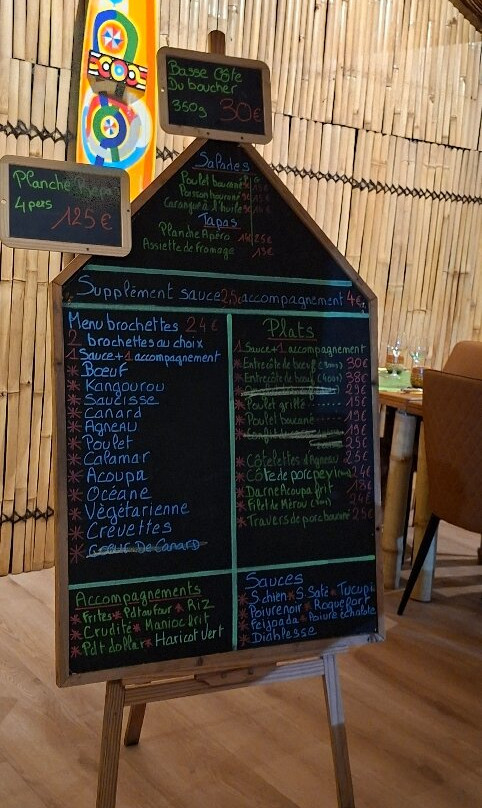 Basse Côte
Du boucher
350g 30€
Planche
4 pers 125€
Salades
Poulet boucané
Poisson boucané
Carangue à l'huile
Tapas
Planche Apéro 25€
Assiette de Fromage 13€
Supplément sauce 2,5€ accompagnement 4€
Menu brochettes 24€
2 brochettes au choix
1 Sauce + 1 accompagnement
* Bœuf
* Kangourou
* Saucisse
* Canard
* Agneau
* Poulet
* Calamar
* Acoupa
* Océane
* Végètarienne
* Crevettes
* Cœur De Canard
Plats
1 Sauce + 1 accompagnement
* Entrecôte de bœuf (300g) 30€
* Entrecôte de bœuf (400g) 38€
29€
* Poulet grillé ...... 15€
* Poulet boucané 19€
19€
25€
* Côtelettes d'Agneau 25€
* Côte de porc peyi 24€
* Darne Acoupa frit 18€
* Filet de Mérou 24€
* Travers de porc boucané 25€
Accompagnements
* Frites * Pdt au four * Riz
* Crudité * Manioc frit
* Pdt dollar * Haricot Vert
Sauces
* S. chien * S. Saté * Tucupi
* Poivre noir * Roquefort
* Feijoada * Poivre échalote
* Diablesse